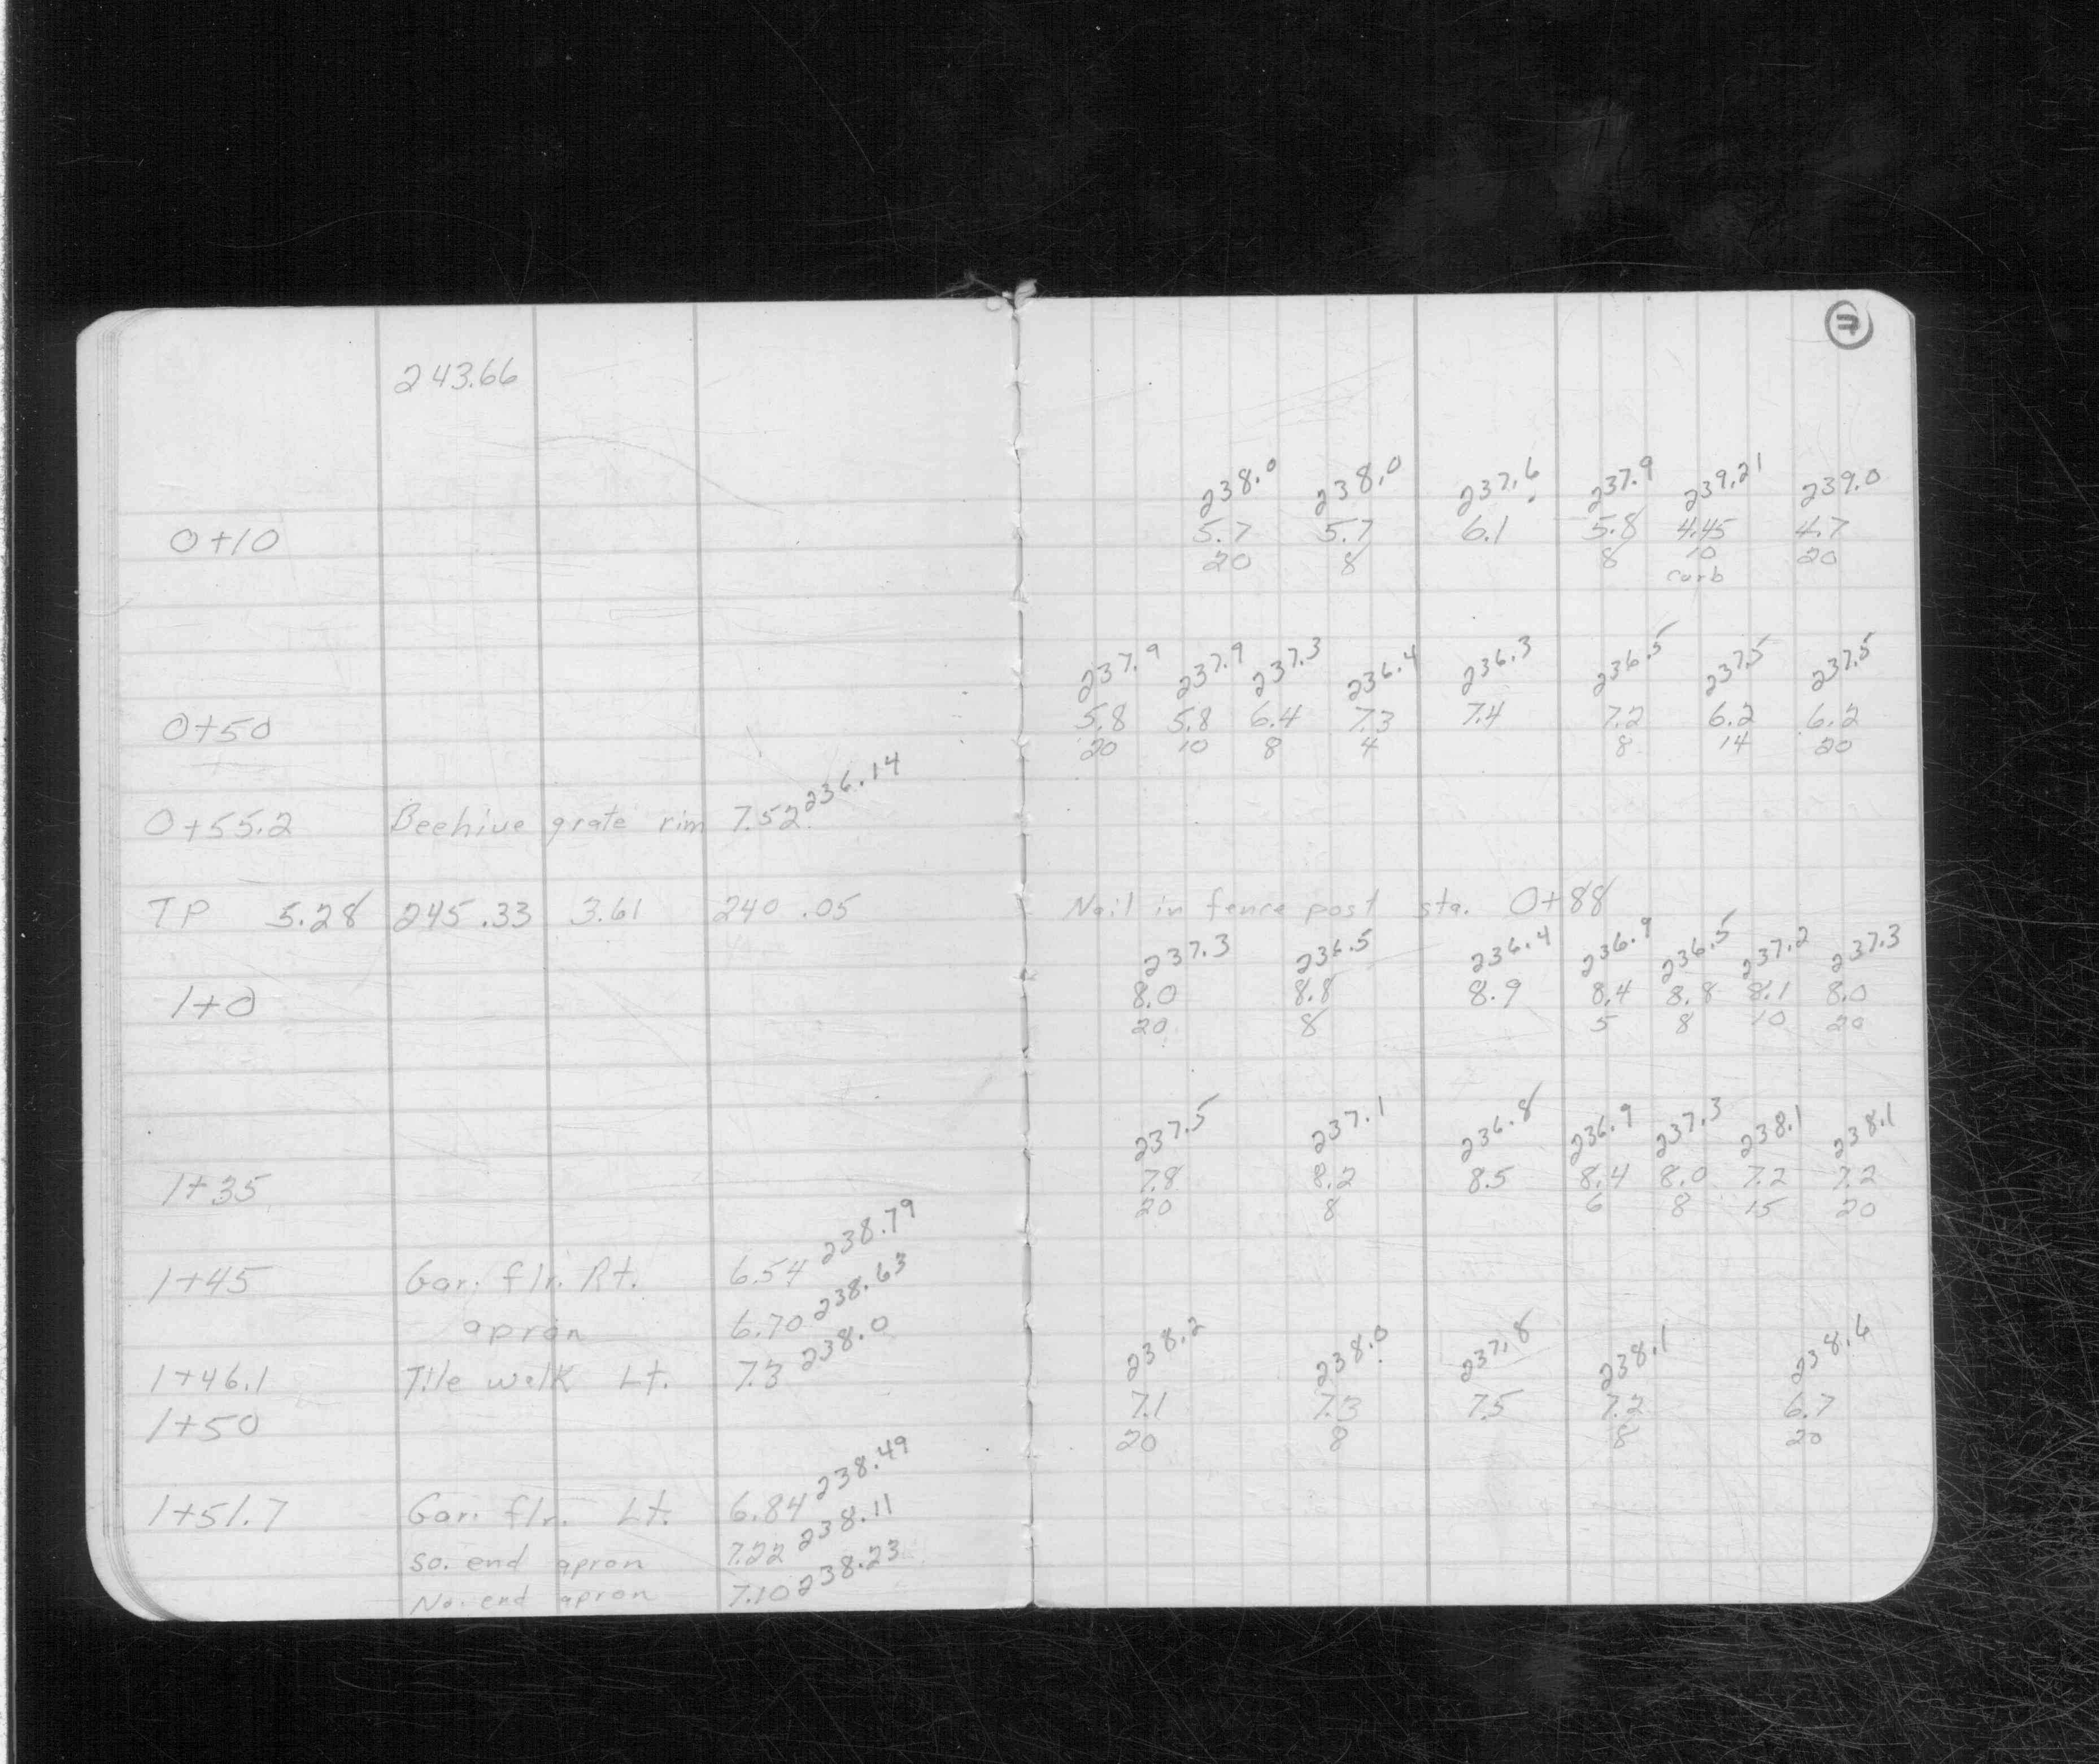 7
243.66
238.0 238.0 237.6 237.9 239.21 239.0
0+10 5.7 5.7 6.1 5.8 4.45 4.7
20 8 8 10 20
curb
237.9 237.9 237.3 236.4 236.3 236.5 237.5 237.5
0+50 5.8 5.8 6.4 7.3 7.4 7.2 6.2 6.2
20 10 8 4 8 14 20
0+55.2 Beehive grate rim 7.52 236.14
TP 5.28 245.33 3.61 240.05 Nail in fence post sta. 0+88
237.3 236.5 236.4 236.9 236.5 237.2 237.3
1+0 8.0 8.8 8.9 8.4 8.8 8.1 8.0
20 8 5 8 10 20
237.5 237.1 236.8 236.9 237.3 238.1 238.1
1+35 7.8 8.2 8.5 8.4 8.0 7.2 7.2
20 8 6 8 15 20
1+45 Gar. flr. Rt. 6.54 238.79
apron 6.70 238.63
238.2 238.0 237.8 238.1 238.6
1+46.1 Tile walk Lt. 7.3 238.0
1+50 7.1 7.3 7.5 7.2 6.7
20 8 8 20
1+51.7 Gar. flr. Lt. 6.84 238.49
So. end apron 7.22 238.11
No. end apron 7.10 238.23